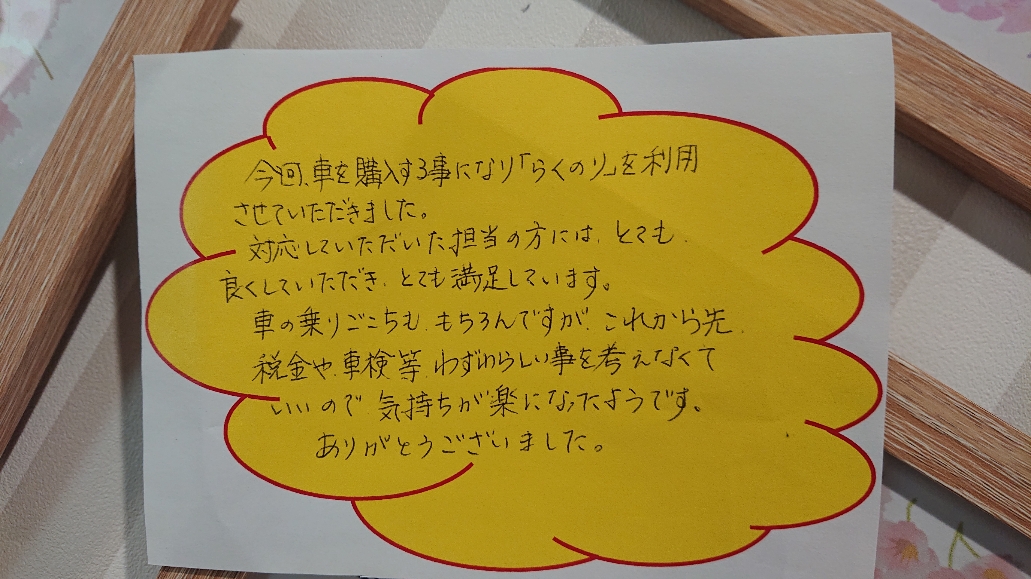 今回、車を購入する事になり「らくのり」を利用
させていただきました。
対応していただいた担当の方には、とても、
良くしていただき、とても満足しています。
車の乗りごこちも、もちろんですが、これから先、
税金や、車検等、わずわらしい事を考えなくて
いいので 気持ちが楽になったようです。
ありがとうございました。